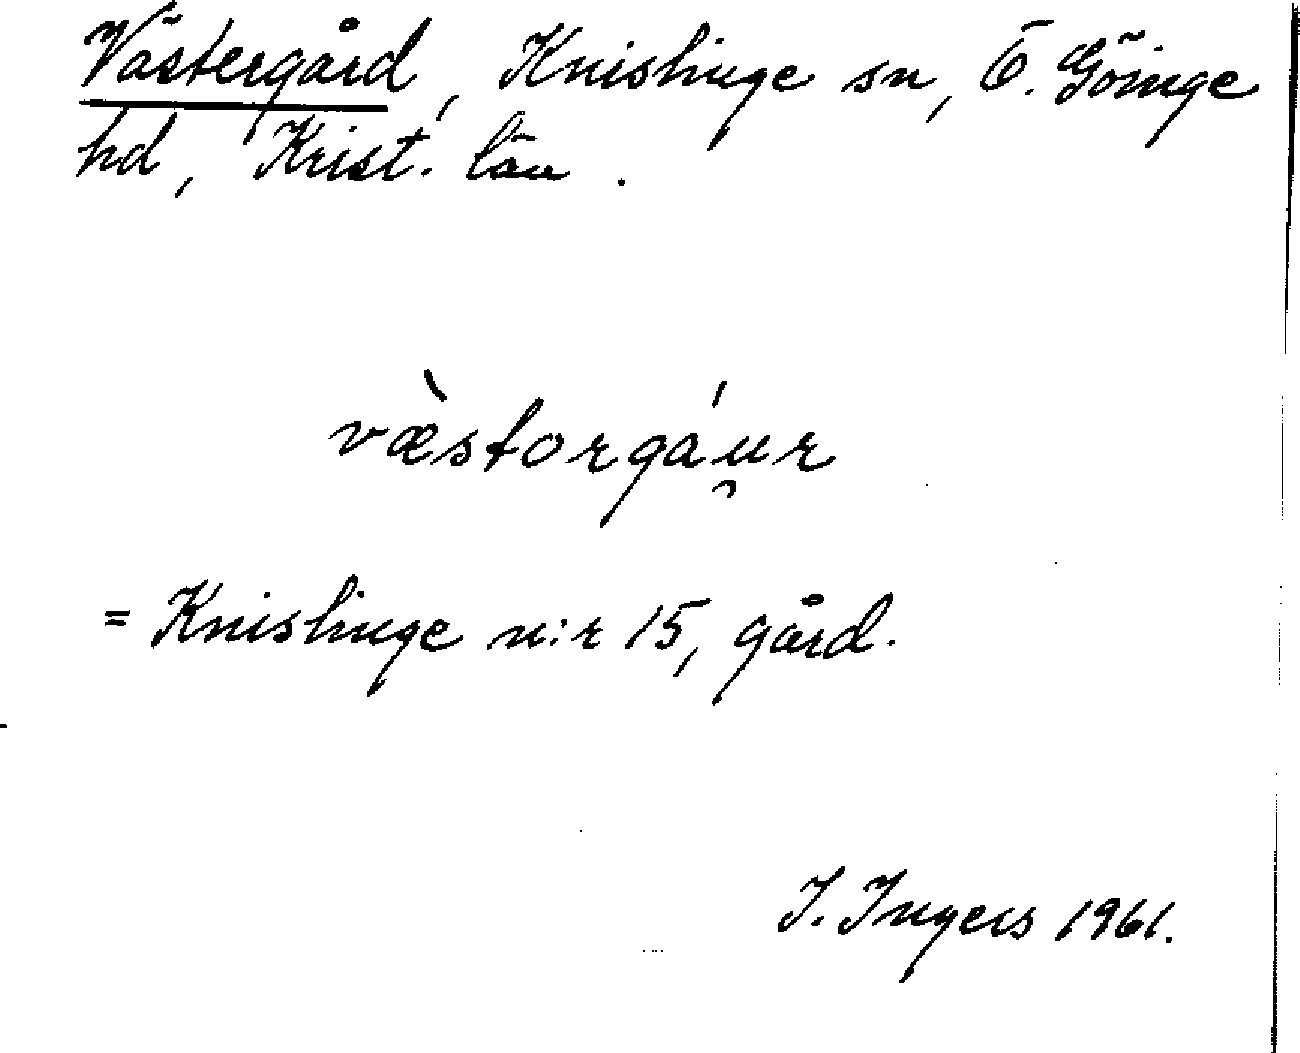 Västergård, Knislinge sn, Ö. Göinge
hd, Krist. län.
væ̀storgáu̯r
= Knislinge n:r 15, gård.
I. Ingers 1961.